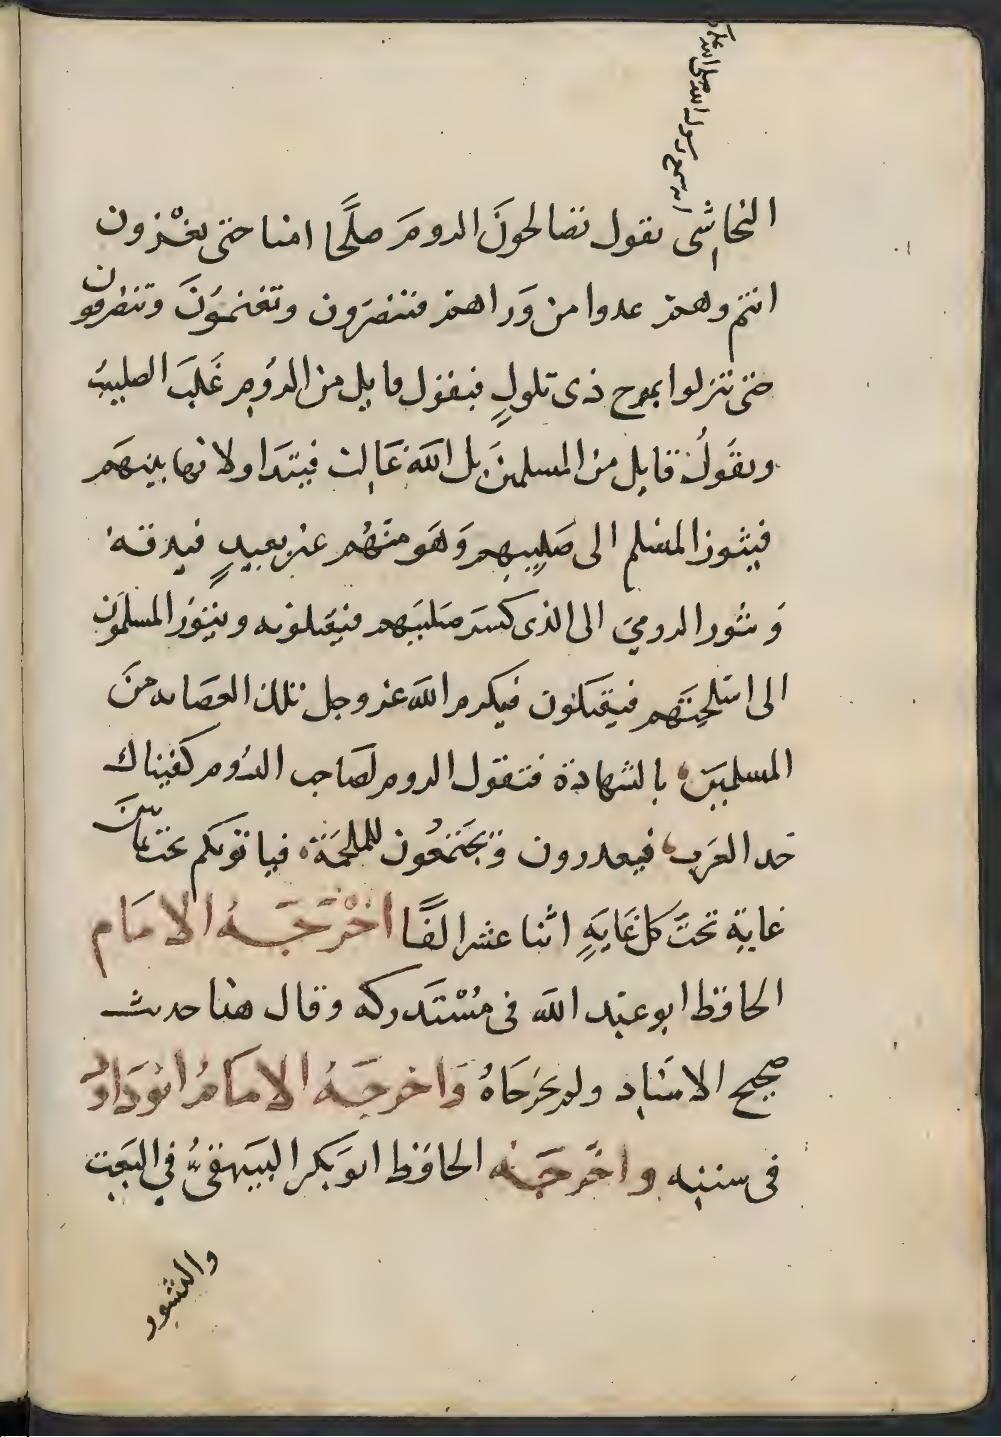 انه سمع رسول الله صلى الله عليه
النجاشي يقول تصالحون الروم صلحًا امنا حتى تغزون
انتم وهم عدوا من وراهم فتنصرون وتغنمون وتنصرفون
حتى تنزلوا بمرج ذي تلولٍ فيقول قايل من الروم غلب الصليب
ويقول قايل من المسلمين بل الله غالب فيتداولانها بينهم
فيثور المسلم الى صليبهم وهو منهم غير بعيدٍ فيدقه
وتثور الروم الى الذي كسر صليبهم فيقتلونه ويثور المسلمون
الى اسلحتهم فيقتلون فيكرم الله عز وجل تلك العصابه من
المسلمين بالشهادة فتقول الروم لصاحب الروم كفيناك
حد العرب فيغدرون وتجتمعون للملحمة فياتونكم تحت ثمانين
غاية تحت كل غايةٍ اثنا عشر الفًا اخرجه الامام
الحافظ ابو عبد الله في مستدركه وقال هذا حديث
صحيح الاسناد ولم يخرجاه واخرجه الامام ابو داود
في سننه واخرجه الحافظ ابو بكر البيهقي في البعث
والنشور